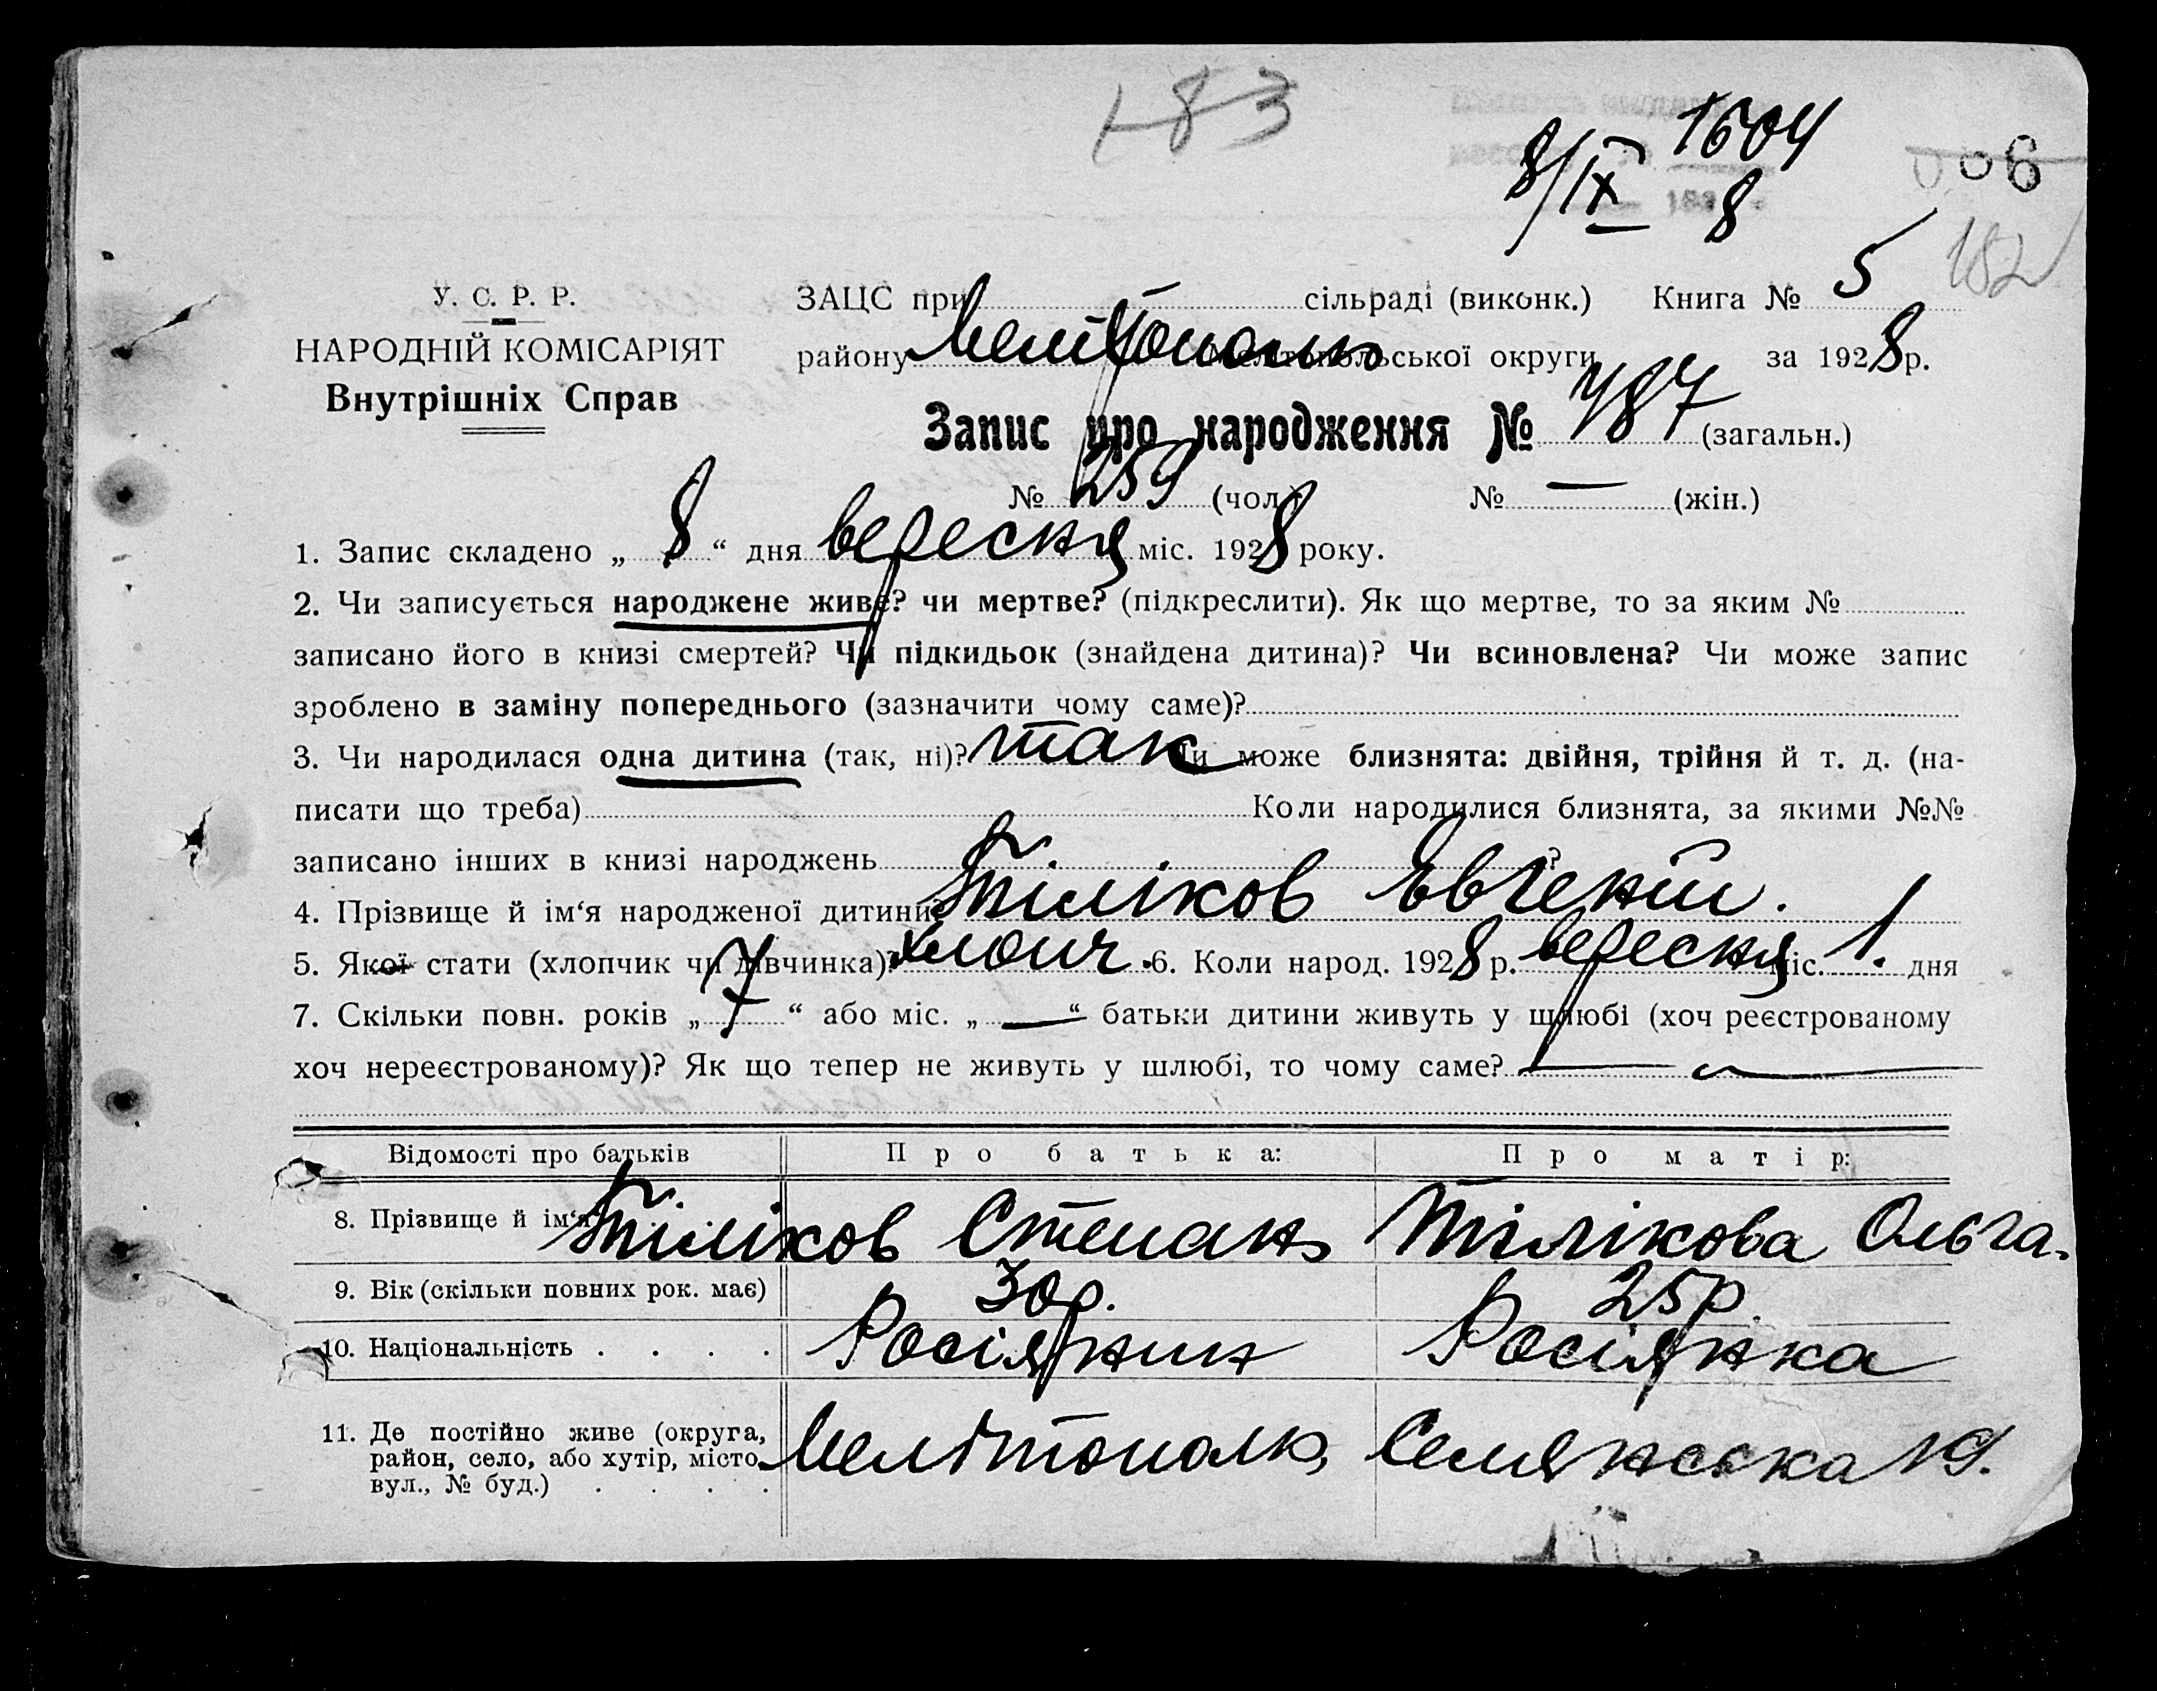 183
1604
8/IX 8
006
182
У. С. Р. Р.
НАРОДНІЙ КОМІСАРІЯТ
Внутрішніх Справ
ЗАЦС при сільраді (виконк.) Книга № 5
району Мелітополь Мелітопольської округи за 1928 р.
Запис про народження № 487 (загальн.)
№ 259 (чол.) № — (жін.)
1. Запис складено „ 8 “ дня вересня міс. 1928 року.
2. Чи записується народжене живе? чи мертве? (підкреслити). Як що мертве, то за яким №
записано його в книзі смертей? Чи підкидьок (знайдена дитина)? Чи всиновлена? Чи може запис
зроблено в заміну попереднього (зазначити чому саме)?
3. Чи народилася одна дитина (так, ні)? так Чи може близнята: двійня, трійня й т. д. (на-
писати що треба) Коли народилися близнята, за якими №№
записано інших в книзі народжень ?
4. Прізвище й ім‘я народженої дитини? Тіліков Євгеній.
5. Якої стати (хлопчик чи дівчинка)? хлопч. 6. Коли народ. 1928 р. вересня міс. 1. дня
7. Скільки повн. років „ 7 “ або міс. „ — “ батьки дитини живуть у шлюбі (хоч реєстрованому
хоч нереєстрованому)? Як що тепер не живуть у шлюбі, то чому саме? —
Відомості про батьків Про батька: Про матір:
8. Прізвище й ім‘я Тіліков Степан Тілікова Ольга.
9. Вік (скільки повних рок. має) 30 р. 25 р.
10. Національність . . . . Росіянин Росіянка
11. Де постійно живе (округа,
район, село, або хутір, місто,
вул., № буд.) . . . . Мелітополь, 19.